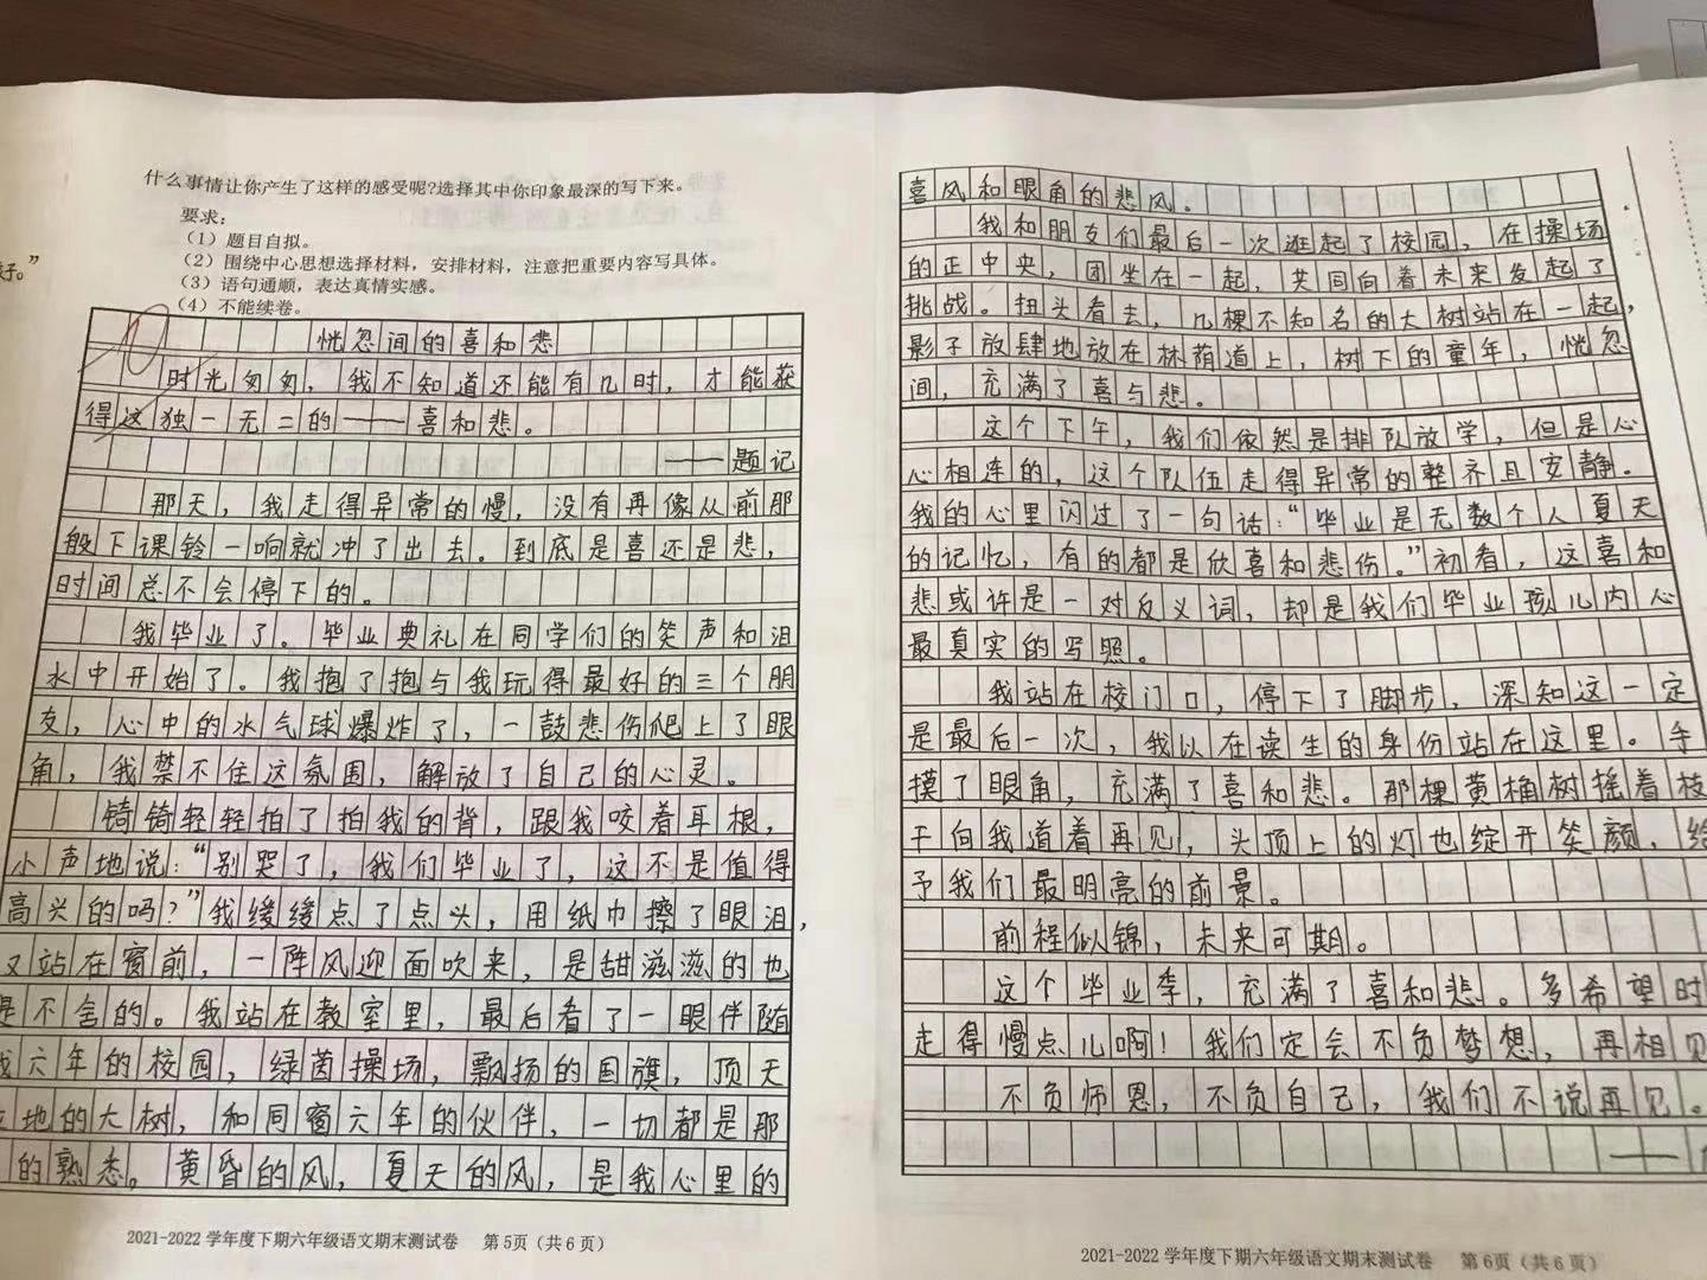 孩子。”
什么事情让你产生了这样的感受呢?选择其中你印象最深的写下来。
要求:
(1)题目自拟。
(2)围绕中心思想选择材料，安排材料，注意把重要内容写具体。
(3)语句通顺，表达真情实感。
(4)不能续卷。
恍忽间的喜和悲
时光匆匆，我不知道还能有几时，才能获
得这独一无二的——喜和悲。
——题记
那天，我走得异常的慢，没有再像从前那
般下课铃一响就冲了出去。到底是喜还是悲，
时间总不会停下的。
我毕业了。毕业典礼在同学们的笑声和泪
水中开始了。我抱了抱与我玩得最好的三个朋
友，心中的水气球爆炸了，一鼓悲伤爬上了眼
角，我禁不住这氛围，解放了自己的心灵。
锜锜轻轻拍了拍我的背，跟我咬着耳根，
小声地说：“别哭了，我们毕业了，这不是值得
高兴的吗？”我缓缓点了点头，用纸巾擦了眼泪，
又站在窗前，一阵风迎面吹来，是甜滋滋的也
是不舍的。我站在教室里，最后看了一眼伴随
我六年的校园，绿茵操场，飘扬的国旗，顶天
立地的大树，和同窗六年的伙伴，一切都是那
的熟悉。黄昏的风，夏天的风，是我心里的
2021-2022学年度下期六年级语文期末测试卷 第5页（共6页）
喜风和眼角的悲风。
我和朋友们最后一次逛起了校园，在操场
的正中央，团坐在一起，共同向着未来发起了
挑战。扭头看去，几棵不知名的大树站在一起，
影子放肆地放在林荫道上，树下的童年，恍忽
间，充满了喜与悲。
这个下午，我们依然是排队放学，但是心
心相连的，这个队伍走得异常的整齐且安静。
我的心里闪过了一句话：“毕业是无数个人夏天
的记忆，有的都是欣喜和悲伤。”初看，这喜和
悲或许是一对反义词，却是我们毕业孩儿内心
最真实的写照。
我站在校门口，停下了脚步，深知这一定
是最后一次，我以在读生的身份站在这里。手
摸了眼角，充满了喜和悲。那棵黄桷树摇着枝
干向我道着再见，头顶上的灯也绽开笑颜，给
予我们最明亮的前景。
前程似锦，未来可期。
这个毕业季，充满了喜和悲。多希望时
走得慢点儿啊！我们定会不负梦想，再相见
不负师恩，不负自己，我们不说再见。
——
2021-2022学年度下期六年级语文期末测试卷 第6页（共6页）